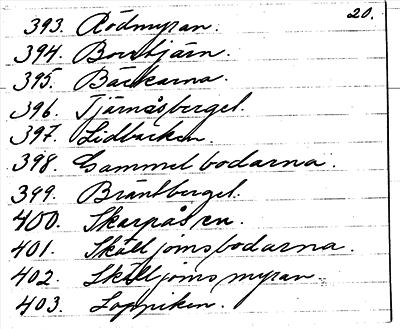 20.
393. Rödmyran.
394. Borrtjärn.
395. Bäckarna.
396. Tjärnåsberget.
397. Lidbäcken.
398. Gammelbodarna.
399. Bräntberget.
400. Skarpåsen.
401. Skålljomsbodarna.
402. Skålljomsmyran.
403. Lappiken.